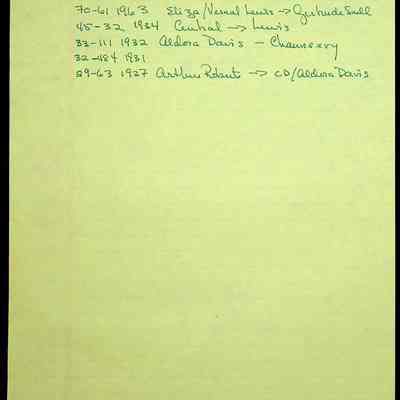 70-61 1963 Eliza/Vernal Lewis -> Gertrude Snell
45-32 1934 Central -> Lewis
33-111 1932 Aldora Davis - Chauncery
32-484 1931
29-63 1927 Arthur Roberts -> CD/Aldora Davis